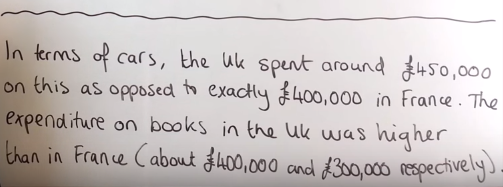 In terms of cars, the Uk spent around £450,000
on this as opposed to exactly £400,000 in France. The
expenditure on books in the Uk was higher
than in France (about £400,000 and £300,000 respectively).